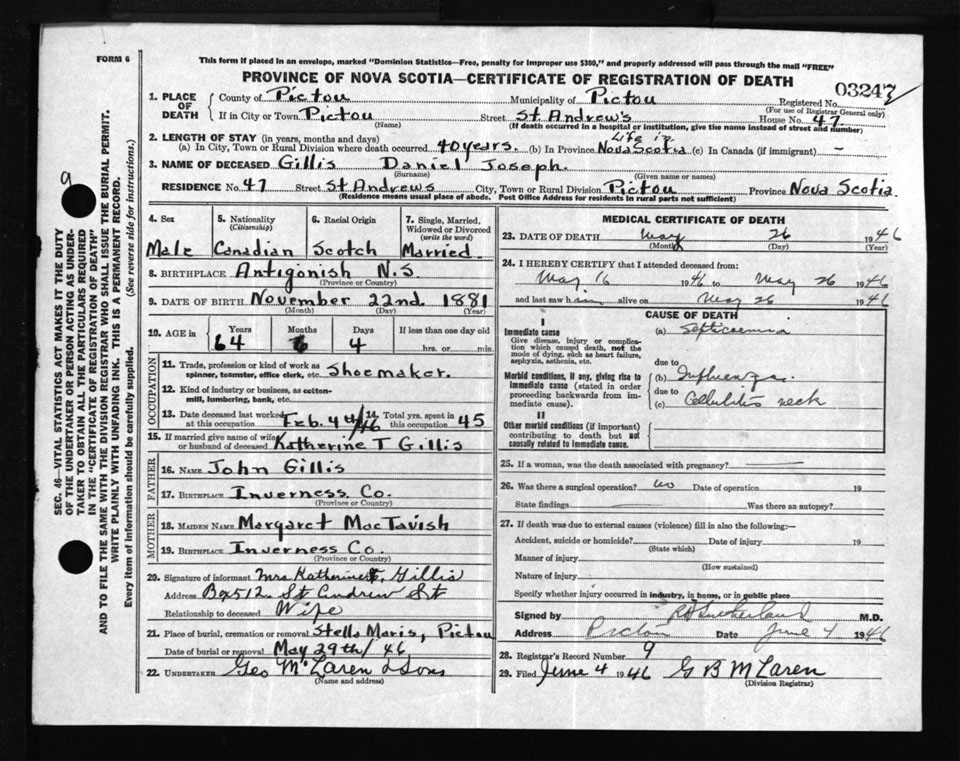 FORM 6
This form if placed in an envelope, marked "Dominion Statistics—Free, penalty for improper use $300," and properly addressed will pass through the mail "FREE"
PROVINCE OF NOVA SCOTIA—CERTIFICATE OF REGISTRATION OF DEATH
03247
1. PLACE OF DEATH County of Pictou Municipality of Pictou Registered No.
(For use of Registrar General only)
If in City or Town Pictou Street St. Andrew's House No. 47.
(Name) (If death occurred in a hospital or institution, give the name instead of street and number)
2. LENGTH OF STAY (in years, months and days)
(a) In City, Town or Rural Division where death occurred 40 years. (b) In Province Life in Nova Scotia (c) In Canada (if immigrant) —
3. NAME OF DECEASED Gillis Daniel Joseph.
(Surname) (Given name or names)
RESIDENCE No. 47 Street St Andrews City, Town or Rural Division Pictou Province Nova Scotia.
(Residence means usual place of abode. Post Office Address for residents in rural parts not sufficient)
4. Sex 5. Nationality (Citizenship) 6. Racial Origin 7. Single, Married, Widowed or Divorced (write the word)
Male Canadian Scotch Married.
8. BIRTHPLACE Antigonish N.S.
(Province or Country)
9. DATE OF BIRTH November 22nd. 1881
(Month) (Day) (Year)
10. AGE in Years Months Days If less than one day old
64 6 4 hrs. or min.
OCCUPATION
11. Trade, profession or kind of work as spinner, teamster, office clerk, etc. Shoemaker.
12. Kind of industry or business, as cotton-mill, lumbering, bank, etc.
13. Date deceased last worked at this occupation Feb. 4th/46 14. Total yrs. spent in this occupation 45
15. If married give name of wife or husband of deceased Katherine T Gillis
FATHER
16. NAME John Gillis
17. BIRTHPLACE Inverness Co.
(Province or Country)
MOTHER
18. MAIDEN NAME Margaret MacTavish
19. BIRTHPLACE Inverness Co.
(Province or Country)
20. Signature of informant Mrs Katherine T. Gillis
Address Box 512. St Andrew St
Relationship to deceased Wife
21. Place of burial, cremation or removal Stella Maris, Pictou
Date of burial or removal May 29th/46
22. UNDERTAKER Geo McLaren & Sons
(Name and address)
MEDICAL CERTIFICATE OF DEATH
23. DATE OF DEATH May 26 1946
(Month) (Day) (Year)
24. I HEREBY CERTIFY that I attended deceased from:
May 16 1946 to May 26 1946
and last saw him alive on May 26 1946
CAUSE OF DEATH
I
Immediate cause (a) Septicaemia
Give disease, injury or complication which caused death, not the mode of dying, such as heart failure, asphyxia, asthenia, etc.
due to
Morbid conditions, if any, giving rise to immediate cause (stated in order proceeding backwards from immediate cause).
(b) Influenza.
due to
(c) Cellulitis neck
II
Other morbid conditions (if important) contributing to death but not causally related to immediate cause.
25. If a woman, was the death associated with pregnancy?
26. Was there a surgical operation? no Date of operation 19
State findings Was there an autopsy?
27. If death was due to external causes (violence) fill in also the following:—
Accident, suicide or homicide? Date of injury 19
(State which)
Manner of injury
(How sustained)
Nature of injury
Specify whether injury occurred in industry, in home, or in public place
Signed by R H Sutherland M.D.
Address Pictou Date June 4 1946
28. Registrar's Record Number 9
29. Filed June 4 1946 G B McLaren
(Division Registrar)
9
SEC. 46—VITAL STATISTICS ACT MAKES IT THE DUTY
OF THE UNDERTAKER OR PERSON ACTING AS UNDER-
TAKER TO OBTAIN ALL THE PARTICULARS REQUIRED
IN THE "CERTIFICATE OF REGISTRATION OF DEATH"
AND TO FILE THE SAME WITH THE DIVISION REGISTRAR WHO SHALL ISSUE THE BURIAL PERMIT.
WRITE PLAINLY WITH UNFADING INK. THIS IS A PERMANENT RECORD.
Every item of information should be carefully supplied. (See reverse side for instructions.)